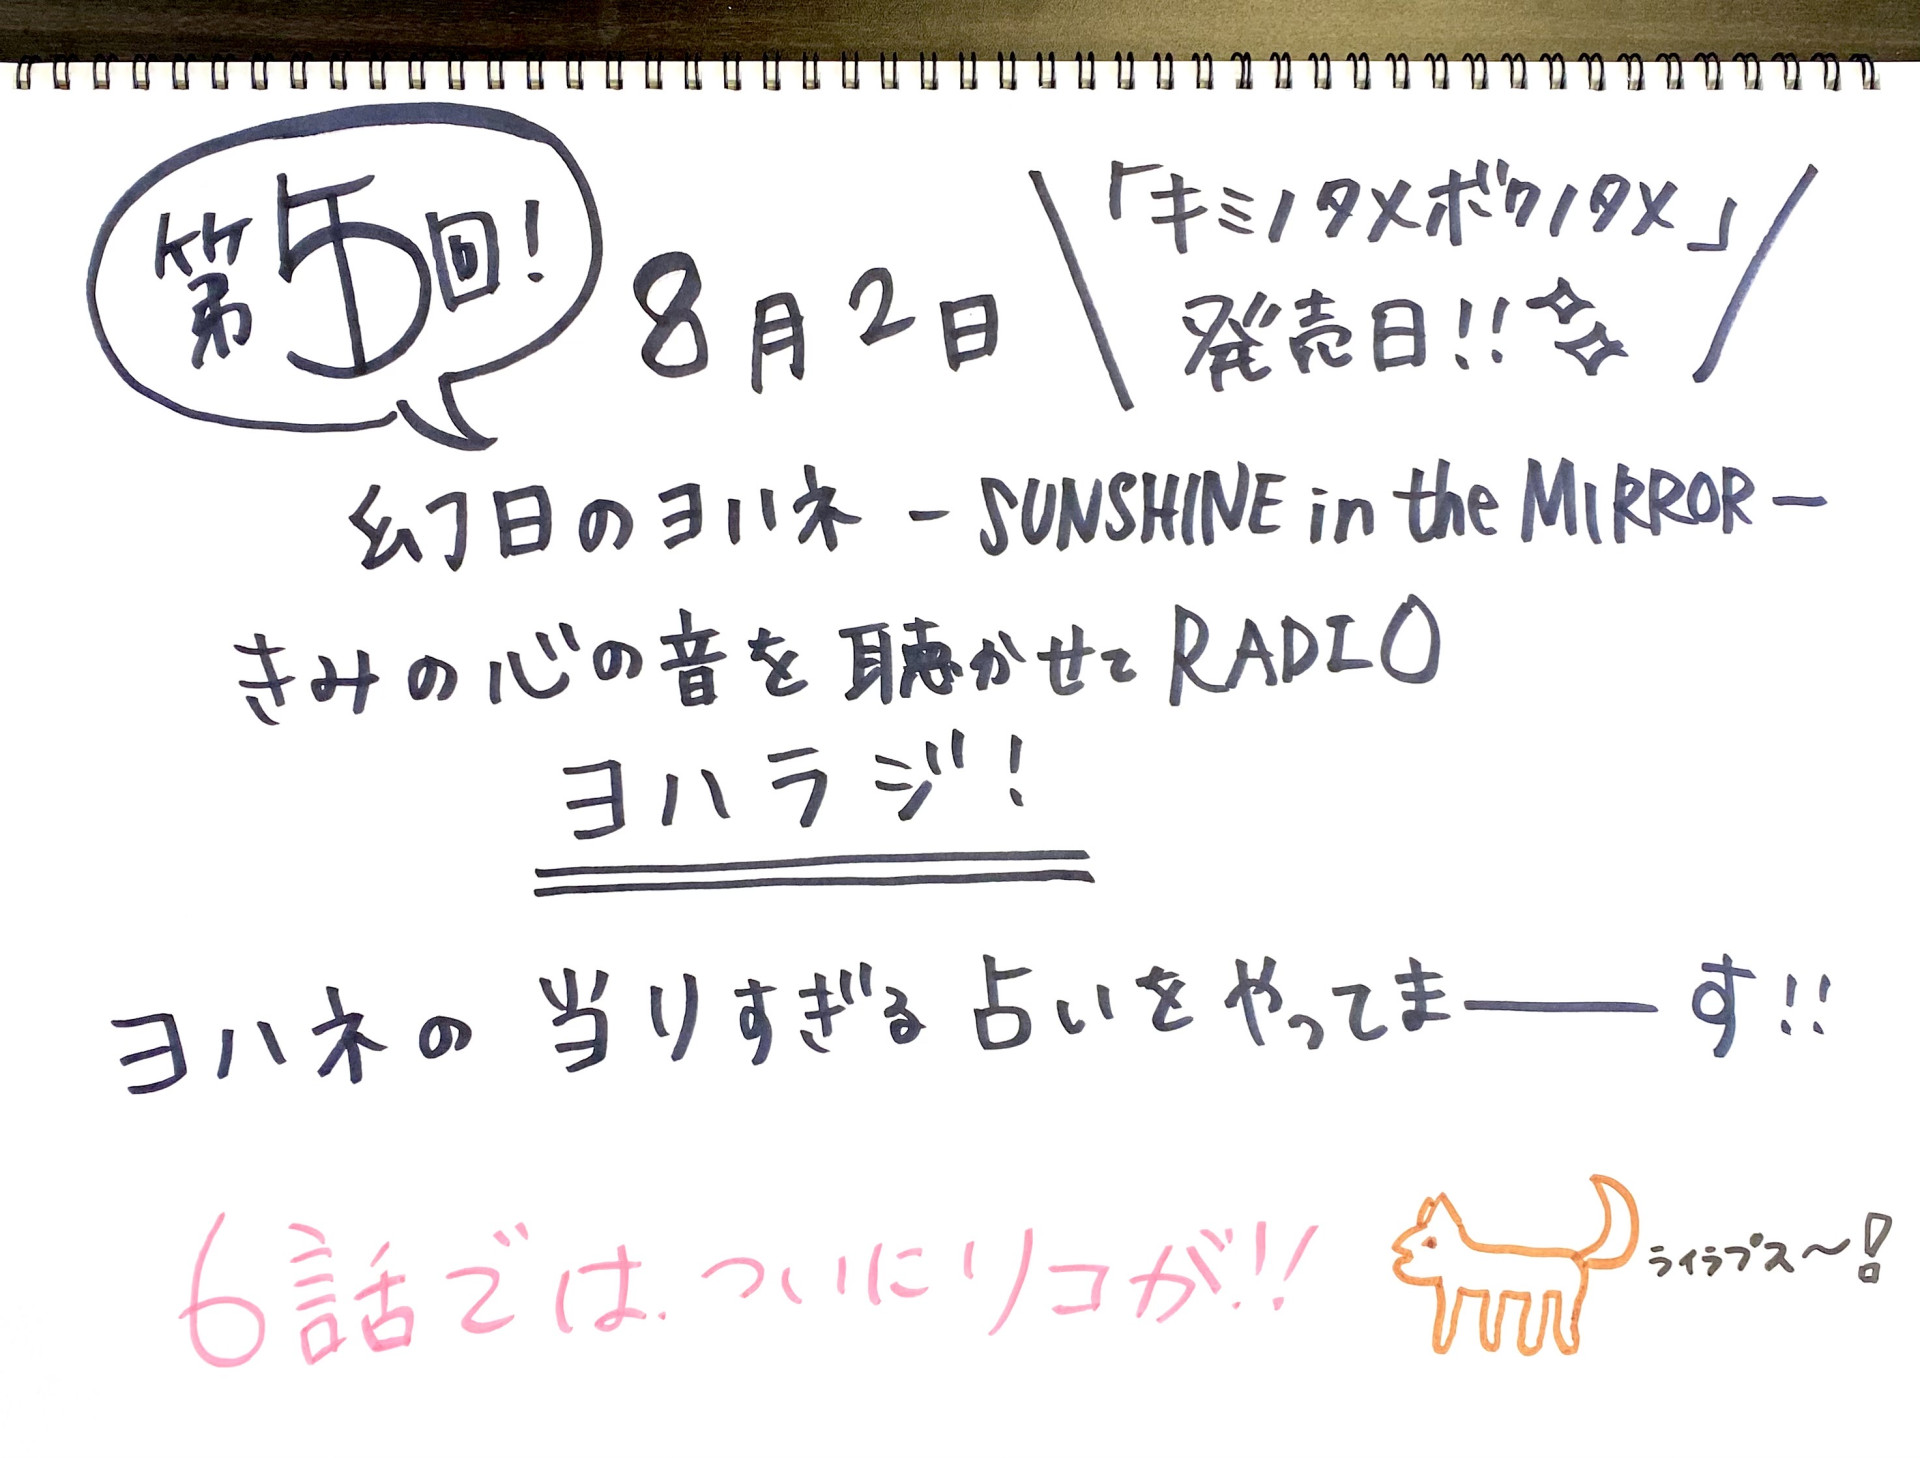 第5回!
8月2日
「キミノタメボクノタメ」
発売日!!
幻日のヨハネ - SUNSHINE in the MIRROR -
きみの心の音を聴かせてRADIO
ヨハラジ!
ヨハネの当りすぎる占いをやってまーーす!!
6話では、ついにリコが!!
ライラプス〜!